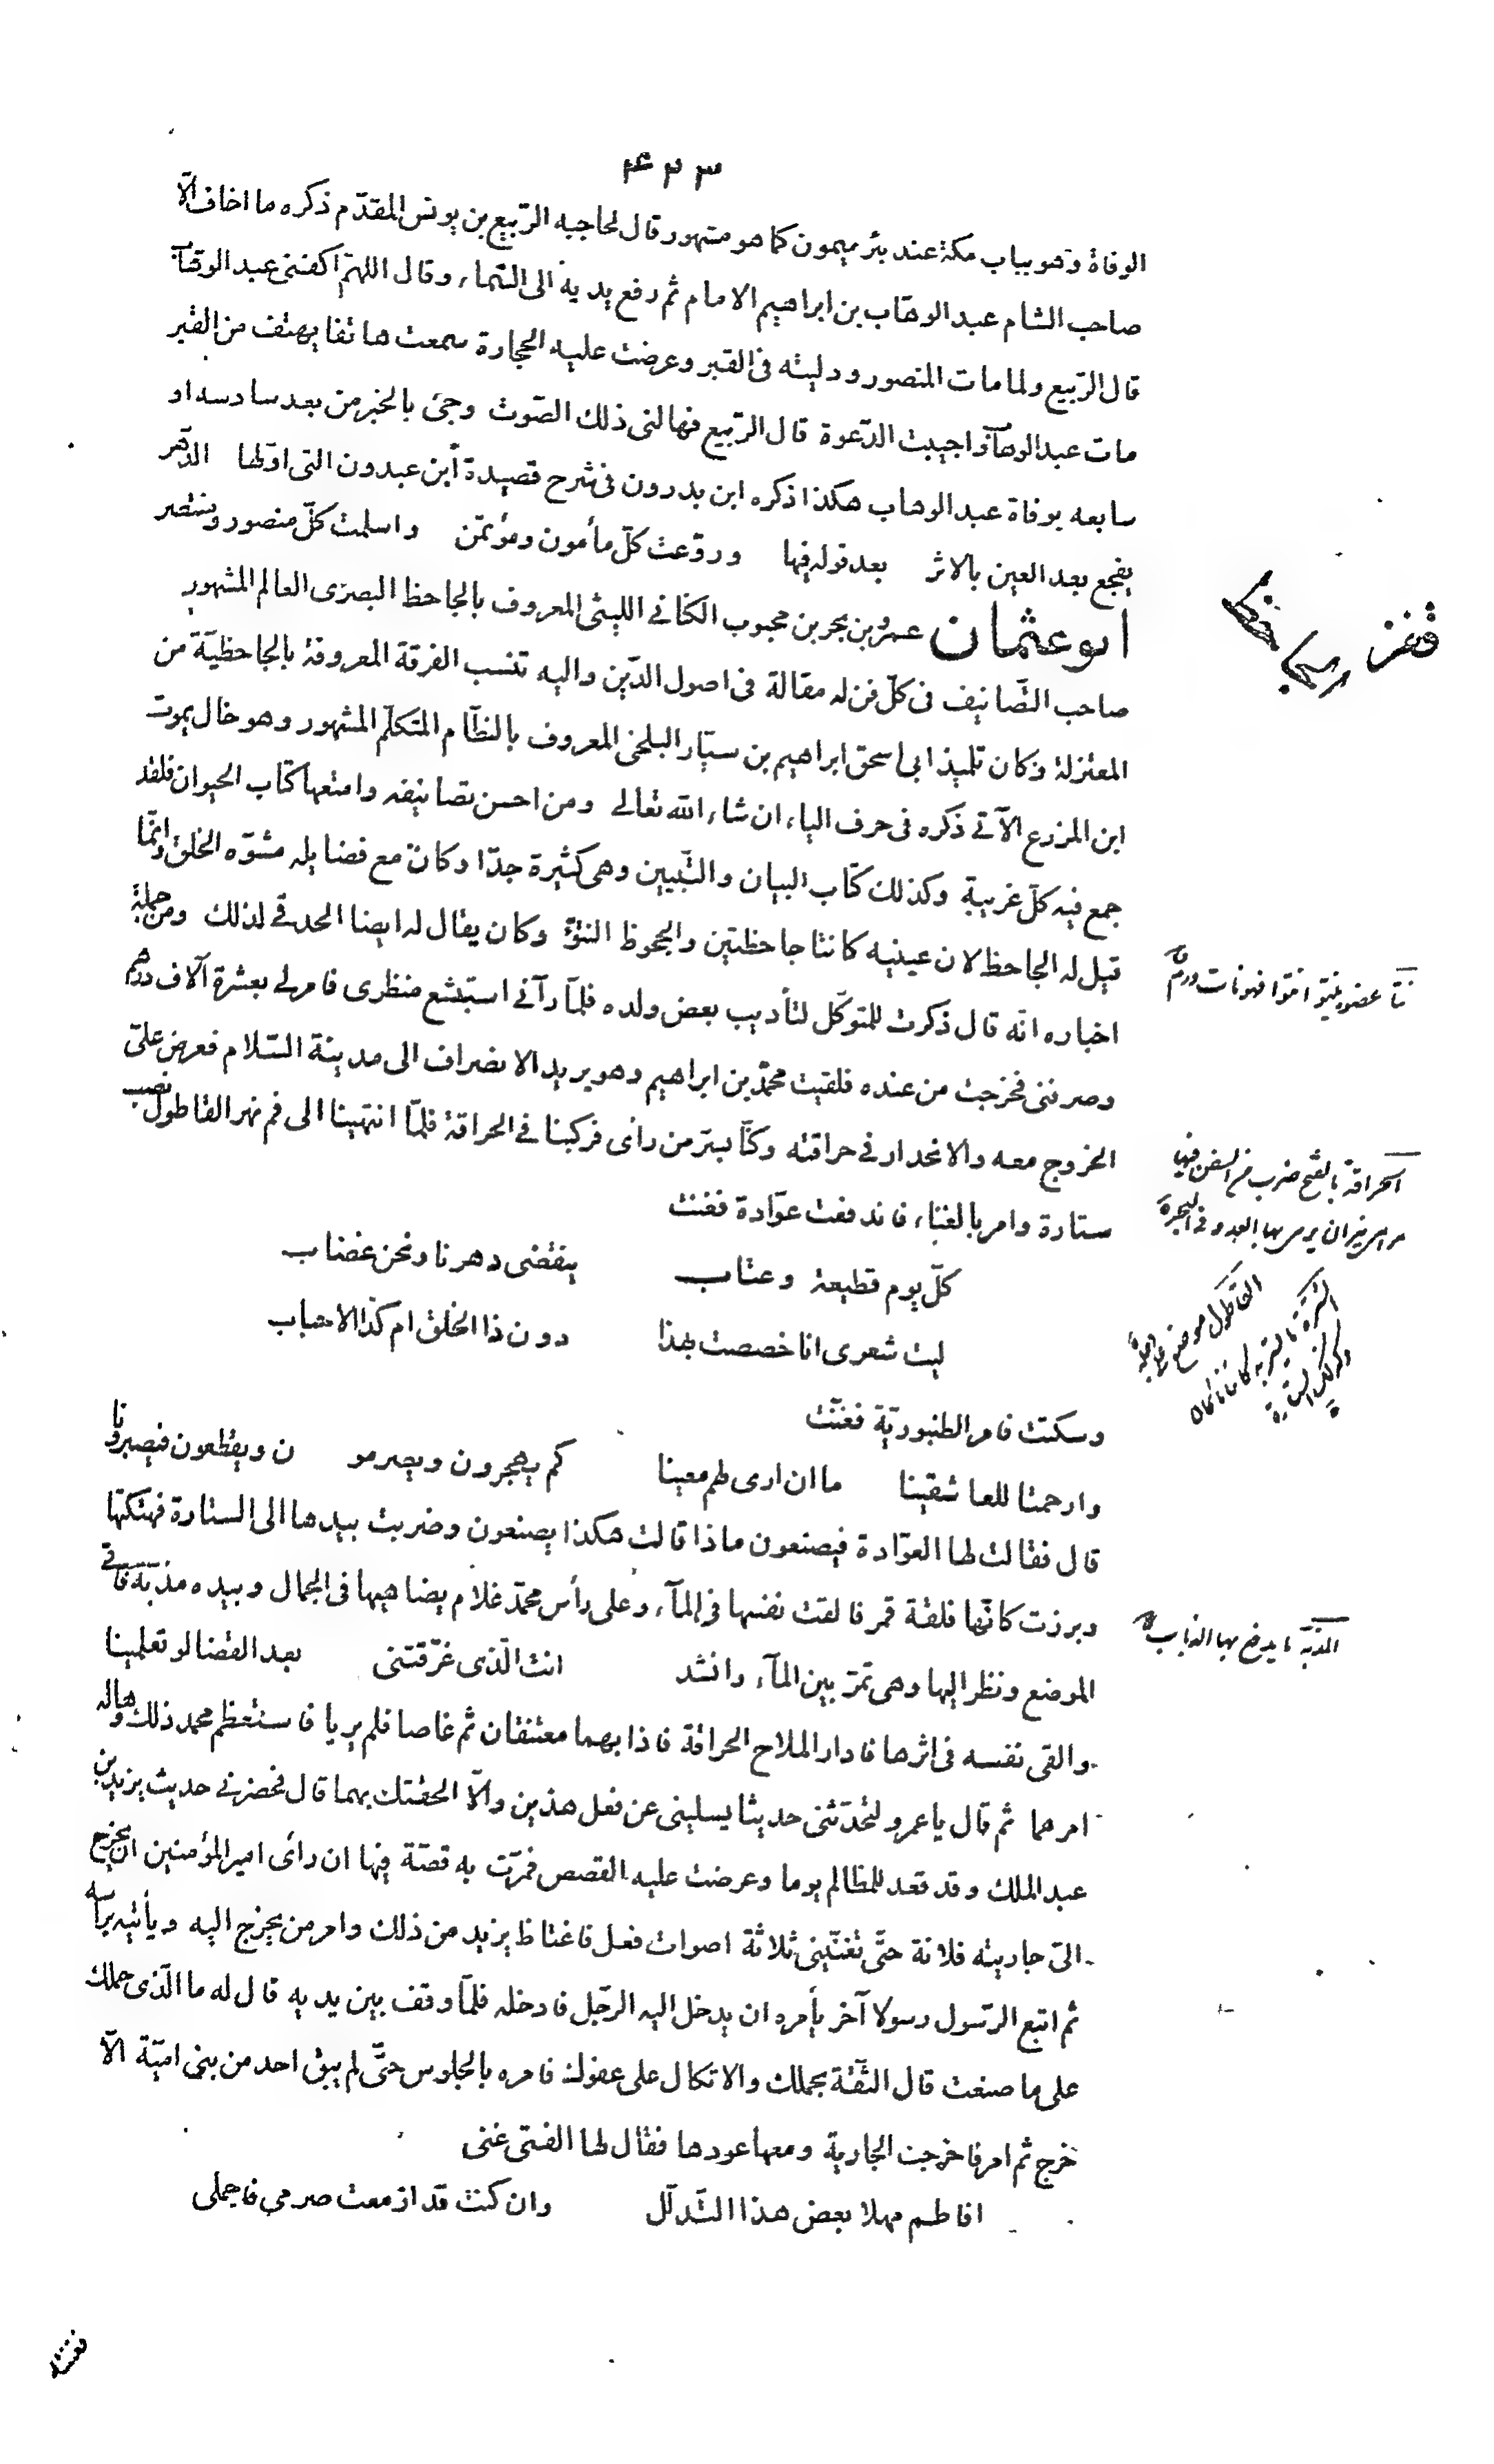 ۴۲۳
الوفاة وهو بباب مكة عند بئر ميمون كما هو مشهور قال لحاجبه الربيع بن يونس المقدّم ذكره ما اخاف الّا
صاحب الشام عبد الوهّاب بن ابراهيم الامام ثم رفع يديه الى السّماء وقال اللهمّ اكفنى عبد الوهّاب
قال الرّبيع ولما مات المنصور ودليته فى القبر وعرضت عليه الحجارة سمعت هاتفا يهتف من القبر
مات عبد الوهّاب واجيبت الدّعوة قال الرّبيع فهالنى ذلك الصّوت وجئ بالخبر من بعد سادسه او
سابعه بوفاة عبد الوهاب هكذا ذكره ابن بدرون فى شرح قصيدة أبن عبدون التى اوّلها الدّهر
يفجع بعد العين بالاثر بعد قوله فيها وروّعت كلّ مأمون ومؤتمّن واسلمت كلّ منصور ومنتصر
ابو عثمان عمرو بن بحر بن محبوب الكنانى الليثى المعروف بالجاحظ البصرى العالم المشهور
قف على الجاحظ
صاحب التّصانيف فى كلّ فن له مقالة فى اصول الدّين واليه تنسب الفرقة المعروفة بالجاحظيّة من
المعتزلة وكان تلميذ ابى اسحق ابراهيم بن سيّار البلخى المعروف بالنظّام المتكلّم المشهور وهو خال يموت
ابن المزرع الآتى ذكره فى حرف الياء ان شاء الله تعالى ومن احسن تصانيفه وامتعها كتاب الحيوان فلقد
جمع فيه كلّ غريبة وكذلك كتاب البيان والتّبيين وهى كثيرة جدّا وكان مع فضايله مشوّه الخلق وانّما
قيل له الجاحظ لان عينيه كانتا جاحظتين والجحوظ النتؤّ وكان يقال له ايضا الحدقى لذلك ومن جملة
اخباره انّه قال ذكرت للمتوكّل لتأديب بعض ولده فلمّا رآنى استبشع منظرى فامر لى بعشرة آلاف درهم
وصرفنى فخرجت من عنده فلقيت محمّد بن ابراهيم وهو يريد الانصراف الى مدينة السّلام فعرض علىّ
الخروج معه والانحدار فى حراقته وكنّا بسرّ من رأى فركبنا فى الحراقة فلمّا انتهينا الى فم نهر القاطول نصب
ستارة وامر بالغناء فاندفعت عوّادة فغنت
كلّ يوم قطيعة وعتاب ينقضى دهرنا ونحن غضاب
ليت شعرى انا خصصت بهذا دون ذا الخلق ام كذا الاحباب
وسكتت فامر الطنبوريّة فغنّت
وارحمتا للعاشقينا ما ان ارى لهم معينا كم يهجرون ويصرمو ن ويقطعون فيصبرونا
قال فقالت لها العوّادة فيصنعون ماذا قالت هكذا يصنعون وضربت بيدها الى الستارة فهتكتها
وبرزت كانّها فلقة قمر فالقت نفسها فى المآء وعلى رأس محمّد غلام يضاهيها فى الجمال وبيده مذبّة فاتى
الموضع ونظر اليها وهى تمرّ بين المآء وانشد انت الّذى غرّقتنى بعد القضا لو تعلمينا
والقى نفسه فى اثرها فادار الملاح الحراقة فاذا بهما معتنقان ثم غاصا فلم يريا فاستعظم محمد ذلك وهاله
امرهما ثم قال يا عمرو لتحدّثنى حديثا يسلينى عن فعل هذين والّا الحقتك بهما قال فحضرنى حديث يزيد بن
عبد الملك وقد قعد للمظالم يوما وعرضت عليه القصص فمرّت به قصّة فيها ان رأى امير المؤمنين ان يخرج
الىّ جاريته فلانة حتّى تغنّينى ثلاثة اصوات فعل فاغتاظ يزيد من ذلك وامر من يخرج اليه ويأتيه برأسه
ثم اتبع الرّسول رسولا آخر يأمره ان يدخل اليه الرجّل فادخله فلمّا وقف بين يديه قال له ما الّذى حملك
على ما صنعت قال الثّقة بحلمك والاتكال على عفوك فامره بالجلوس حتّى لم يبق احد من بنى اميّة الّا
خرج ثم امر فاخرجت الجارية ومعها عودها فقال لها الفتى غنى
افاطم مهلا بعض هذا التّدلّل وان كنت قد ازمعت صرمى فاجملى
نتأ عضو ينتؤ نتوا فهو نات ورم
الحراقة بالفتح ضرب من السفن فيها
مرامى نيران يرمى بها العدو فى البحر
القاطول موضع على دجلة
المذبّة ما يدفع بها الذباب
فغنت